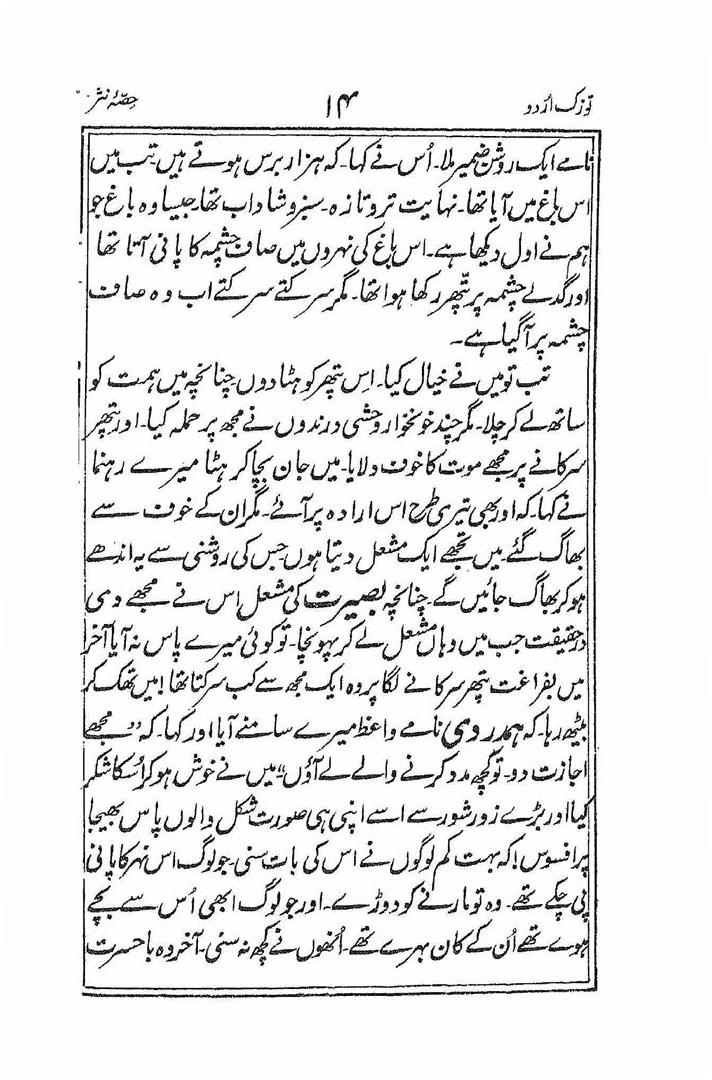 توزک اُردو ۱۴ حصّۂ نثر
نامے ایک روشن ضمیر ملا۔ اُس نے کہا۔ کہ ہزار برس ہوتے ہیں تب میں
اس باغ میں آیا تھا۔ نہایت تروتازہ۔ سبز و شاداب تھا۔ جیسا وہ باغ جو
ہم نے اول دیکھا ہے۔ اس باغ کی نہروں میں صاف چشمہ کا پانی آتا تھا
اور گدلے چشمہ پر پتّھر رکھا ہوا تھا۔ مگر سرکتے سرکتے اب وہ صاف
چشمہ پر آگیا ہے۔
تب تو میں نے خیال کیا۔ اِس پتھر کو ہٹا دوں۔ چنانچہ میں ہمت کو
ساتھ لے کر چلا۔ مگر چند خونخوار وحشی درندوں نے مجھ پر حملہ کیا۔ اور پتھر
سرکانے پر مجھے موت کا خوف دلایا۔ میں جان بچا کر ہٹا میرے رہنما
نے کہا۔ کہ اور بھی تیری طرح اس ارادہ پر آئے۔ مگر ان کے خوف سے
بھاگ گئے میں تجھے ایک مشعل دیتا ہوں جس کی روشنی سے یہ اندھے
ہو کر بھاگ جائیں گے۔ چنانچہ بصیرت کی مشعل اس نے مجھے دی
درحقیقت جب میں وہاں مشعل لے کر پہونچا۔ تو کوئی میرے پاس نہ آیا آخر
میں بفراغت پتھر سرکانے لگا پر وہ ایک مجھ سے کب سرکتا تھا! میں تھک کر
بیٹھ رہا۔ کہ ہمدردی نامے واعظ میرے سامنے آیا اور کہا۔ کہ "مجھے
اجازت دو۔ تو کچھ مدد کرنے والے لے آؤں" میں نے خوش ہو کر اُسکا شکر
کیا اور بڑے زور شور سے اسے اپنی ہی صورت شکل والوں پاس بھیجا
پر افسوس! کہ بہت کم لوگوں نے اس کی بات سنی۔ جو لوگ اس نہر کا پانی
پی چکے تھے۔ وہ تو مارنے کو دوڑے۔ اور جو لوگ ابھی اُس سے بچے
ہوے تھے اُن کے کان بہرے تھے۔ اُنھوں نے کچھ نہ سنی۔ آخر وہ با حسرت